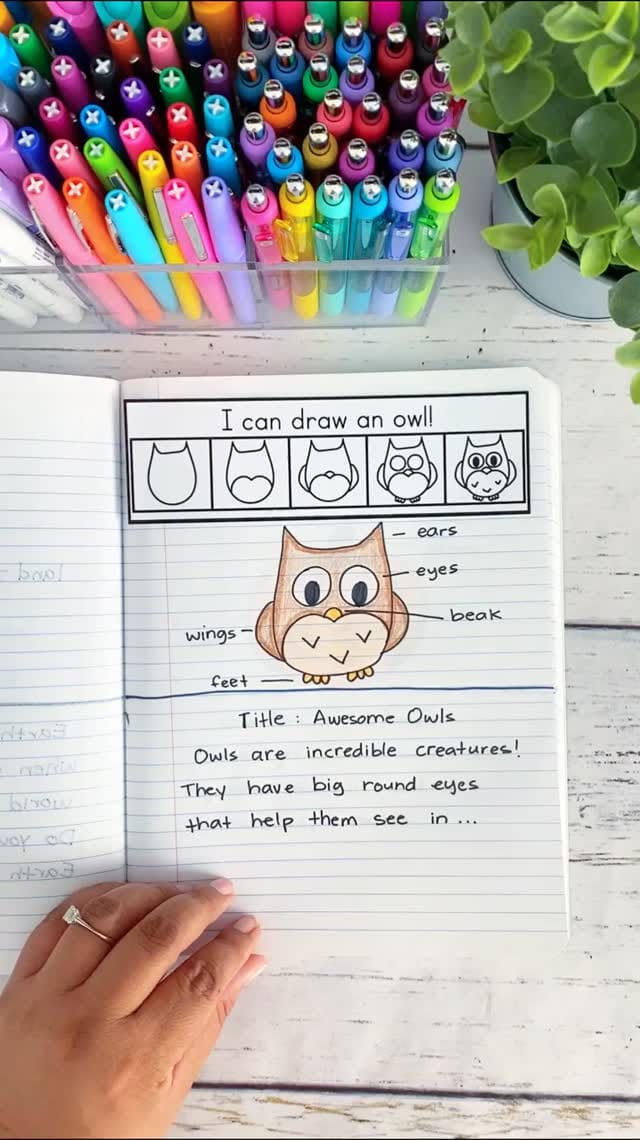 I can draw an owl!
ears
eyes
beak
wings
feet
Title : Awesome Owls
Owls are incredible creatures!
They have big round eyes
that help them see in ...
land
Earth
when
world
Do you
Earth